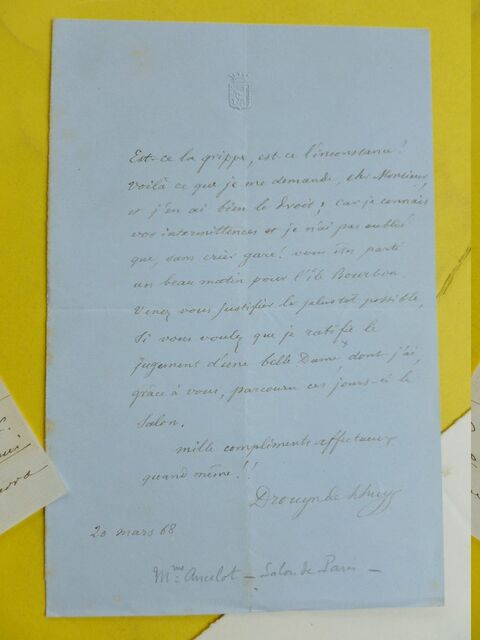 Est-ce la grippe, est-ce l'inconstance!
Voilà ce que je me demande, cher Monsieur,
et j'en ai bien le droit; car je connais
vos intermittences et je n'ai pas oublié
que, sans crier gare! vous êtes parti
un beau matin pour l'île Bourbon.
Venez vous justifier le plus tôt possible,
Si vous voulez que je ratifie le
jugement d'une belle Dame, dont j'ai,
grâce à vous, parcouru ces jours-ci le
Salon.
mille compliments affectueux
quand même!!
Drouyn de Lhuys
20 mars 68
Mme Ancelot - Salon de Paris -